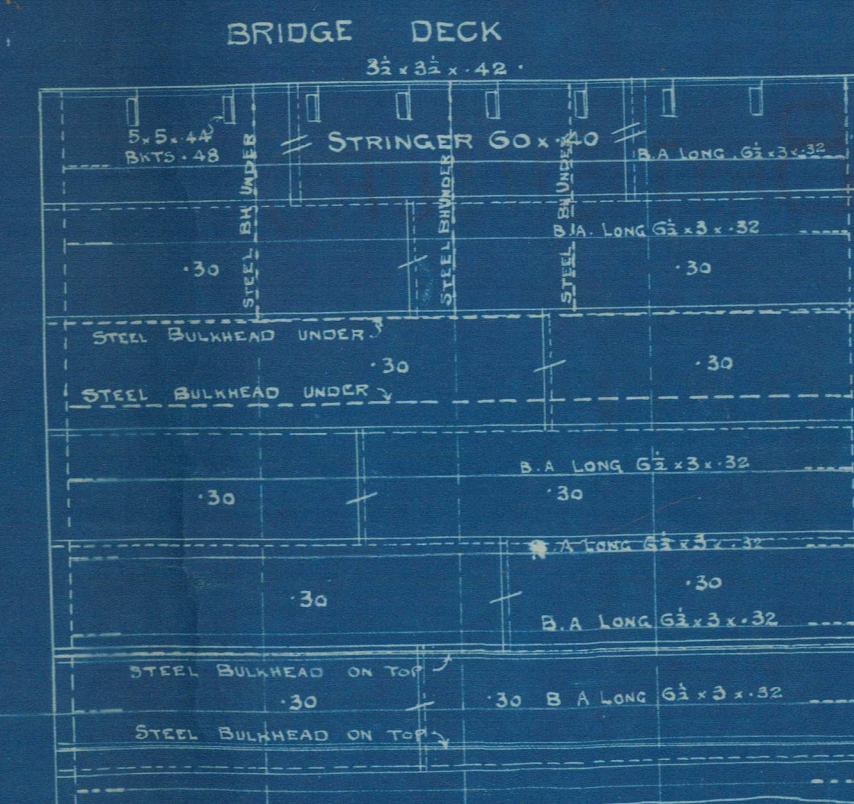 BRIDGE DECK
3½ x 3½ x .42 .
5 x 5 x .44
BKTS .48
STRINGER 60 x .40
B.A LONG . 6½ x 3 x .32
STEEL BH UNDER
STEEL BH UNDER
STEEL BH UNDER
B.A. LONG 6½ x 3 x .32
.30
.30
STEEL BULKHEAD UNDER
.30
.30
STEEL BULKHEAD UNDER
B.A LONG 6½ x 3 x .32
.30
.30
.A LONG 6½ x 3 x .32
.30
.30
B.A LONG 6½ x 3 x .32
STEEL BULKHEAD ON TOP
.30
.30 B A LONG 6½ x 3 x .32
STEEL BULKHEAD ON TOP